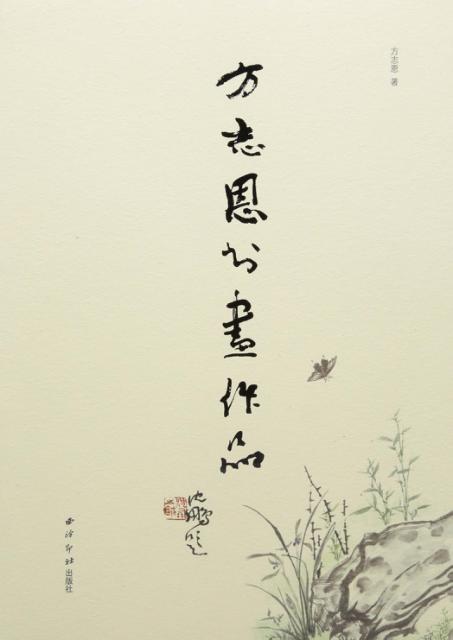 方志恩 著
方志恩书畫作品
沈鹏题
西泠印社出版社